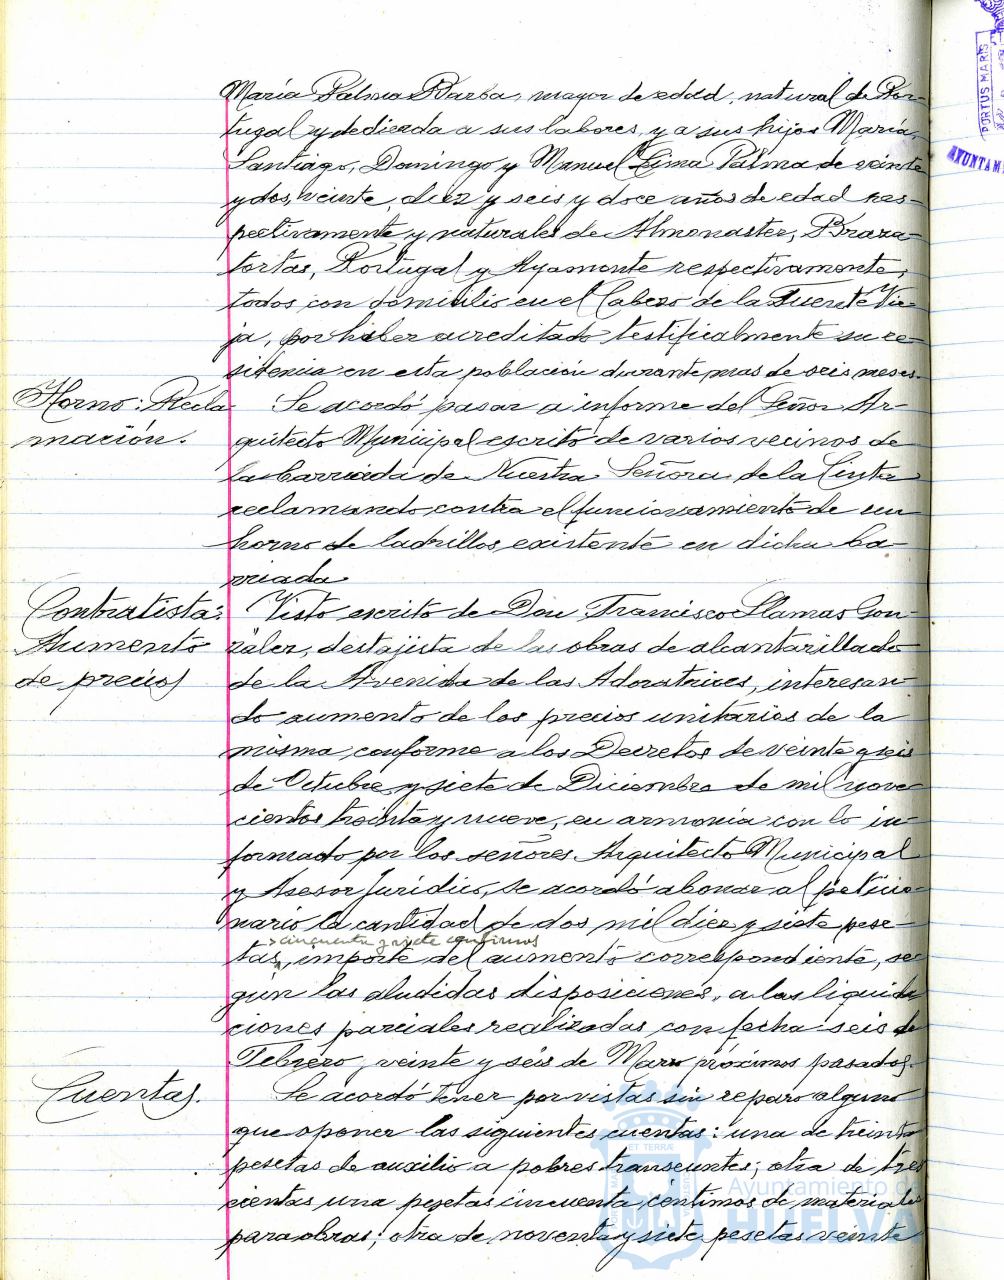 Maria Palma Barba, mayor de edad, natural de Por-
tugal y dedicada a sus labores, y a sus hijos María,
Santiago, Domingo y Manuel Lima Palma de veinte
y dos, veinte, diez y seis y doce años de edad res-
pectivamente y naturales de Almonaster, Braza-
tortas, Portugal y Ayamonte respectivamente,
todos con domicilio en el Cabezo de la Fuente Vie-
ja, por haber acreditado testificalmente su re-
sidencia en esta población durante mas de seis meses.
Horno: Recla-
mación.
Se acordó pasar a informe del Señor Ar-
quitecto Municipal escrito de varios vecinos de
la barriada de Nuestra Señora de la Cinta
reclamando contra el funcionamiento de un
horno de ladrillos existente en dicha ba-
rriada
Contratista:
Aumento
de precios
Visto escrito de Don Francisco Llamas Gon-
zález, destajista de las obras de alcantarillado
de la Avenida de las Adoratrices, interesan-
do aumento de los precios unitarios de la
misma conforme a los Decretos de veinte y seis
de Octubre y siete de Diciembre de mil nove-
cientos treinta y nueve, en armonía con lo in-
formado por los señores Arquitecto Municipal
y Asesor Jurídico, se acordó abonar al peticio-
nario la cantidad de dos mil diez y siete pese-
cincuenta y siete centimos
tas, importe del aumento correspondiente, se-
gún las aludidas disposiciones, a las liquida-
ciones parciales realizadas con fecha seis de
Febrero, veinte y seis de Marzo próximos pasados.
Cuentas.
Se acordó tener por vistas sin reparo alguno
que oponer las siguientes cuentas: una de treinta
pesetas de auxilio a pobres transeuntes; otra de tres
cientas una pesetas cincuenta centimos de materiales
para obras; otra de noventa y siete pesetas veinte
PORTUS MARIS
AYUNTAM
ET TERRÆ
Ayuntamiento de
HUELVA